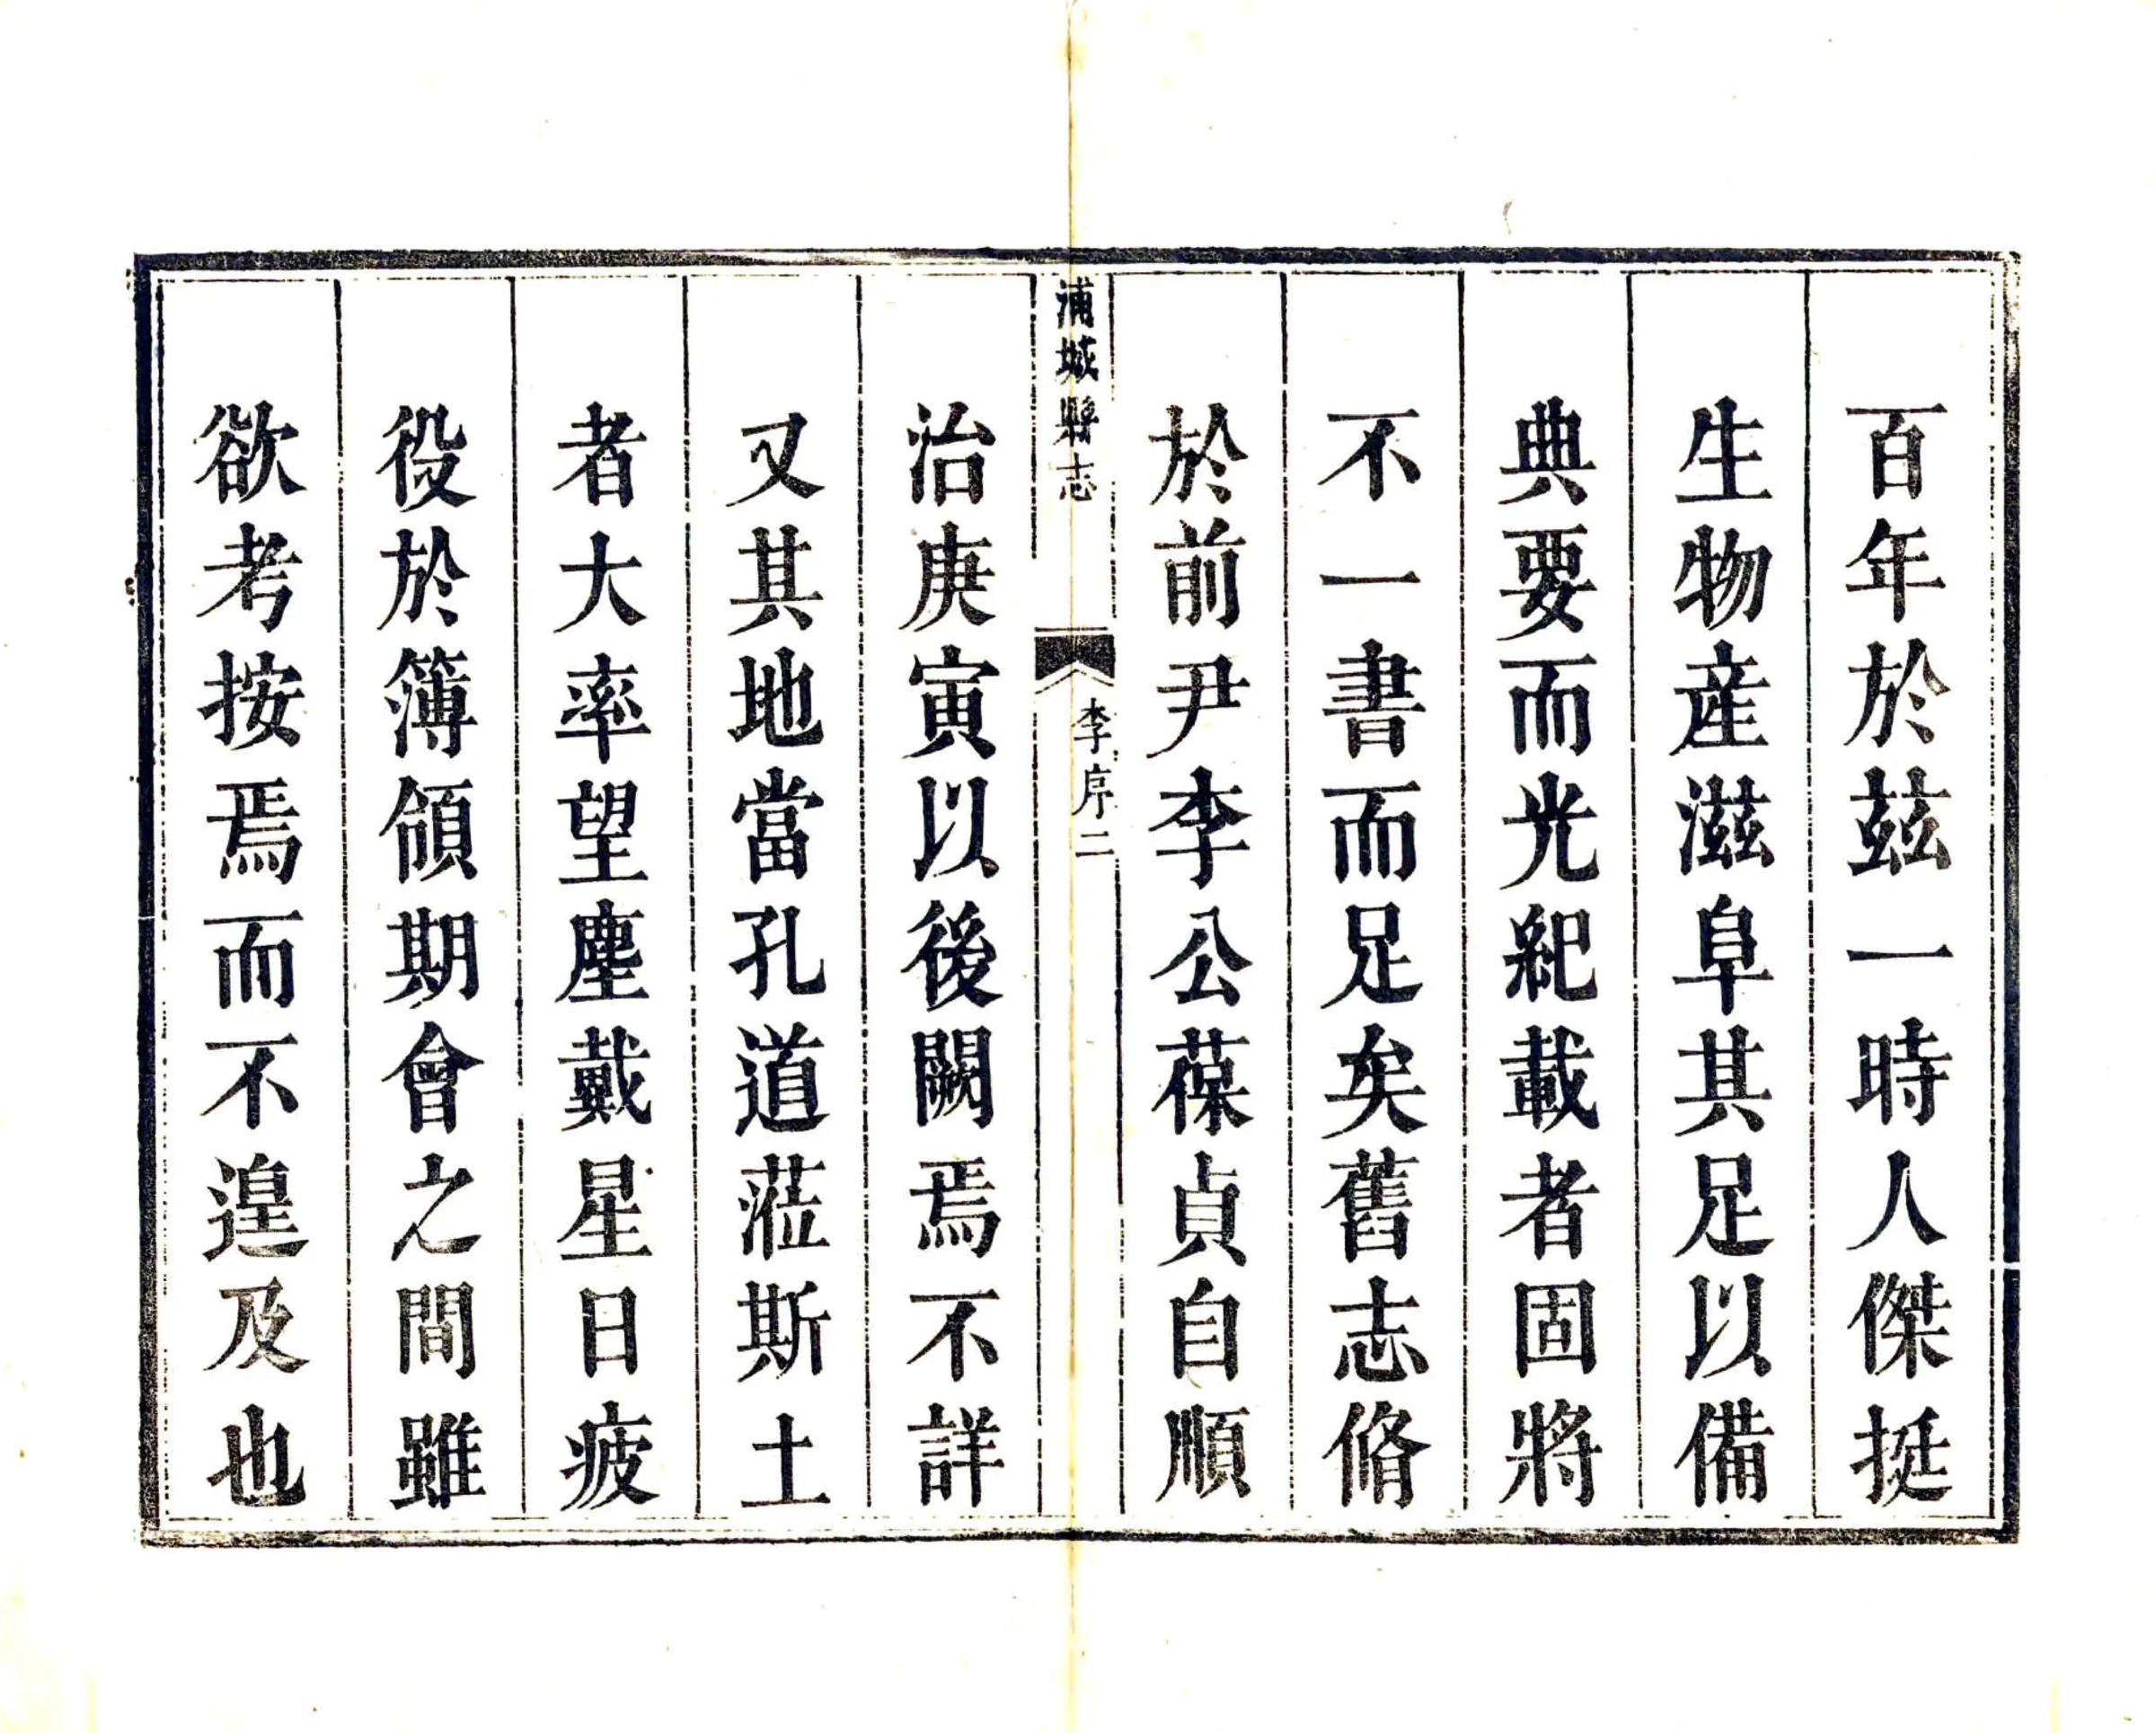 百年於茲一時人傑挺
生物産滋阜其足以備
典要而光紀載者固將
不一書而足矣舊志脩
於前尹李公葆貞自順
浦城縣志
李序二
治庚寅以後闕焉不詳
又其地當孔道蒞斯土
者大率望塵戴星日疲
役於簿領期會之間雖
欲考按焉而不遑及也